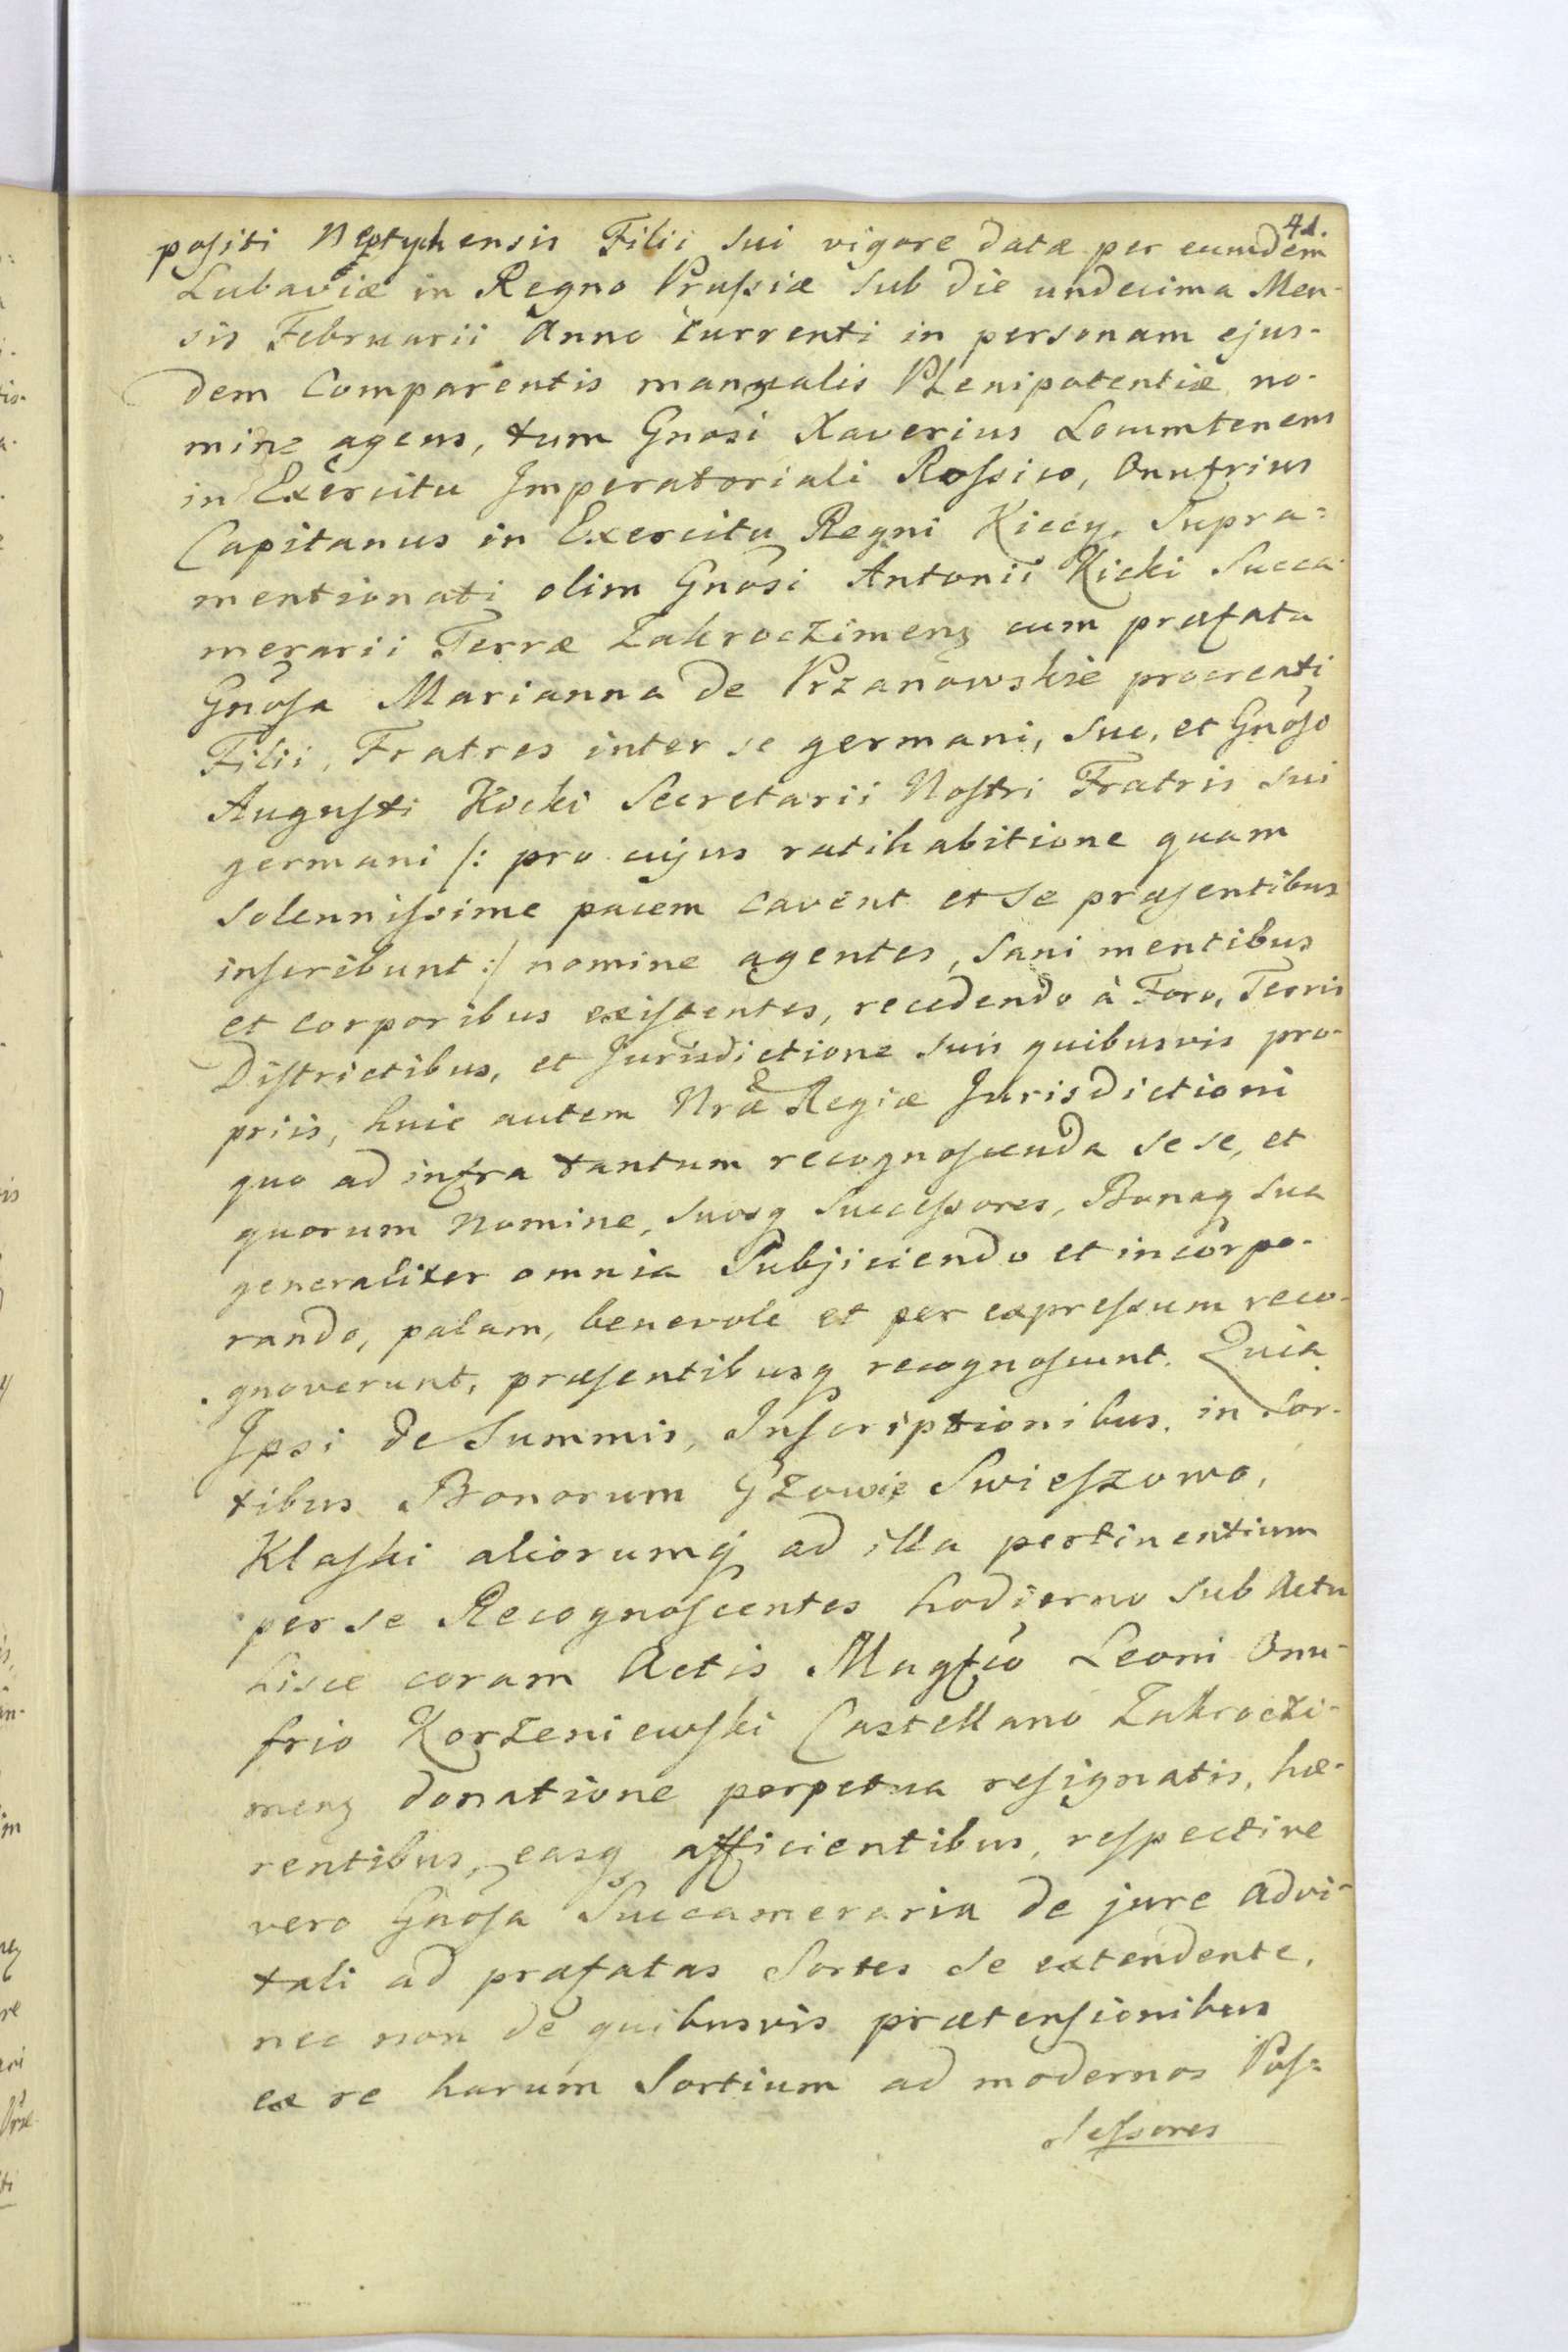 41.
positi Neptychensis Filii sui vigore datæ per eumdem
Lubaviæ in Regno Prussiæ sub die undecima Men-
sis Februarii Anno currenti in personam ejus-
dem Comparentis manualis Plenipotentiæ no-
mine agens, tum Gnosi Xaverius Locumtenens
in Exercitu Imperatoriali Rossico, Onufrius
Capitanus in Exercitu Regni Kiccy, Supra=
mentionati olim Gnosi Antonii Kicki Succa
merarii Terræ Zakroczimens cum præfata
Gnosa Marianna de Przanowskie procreati
Filii, Fratres inter se germani, suo, et Gnoso
Augusti Kicki Secretarii Nostri Fratris sui
germani /: pro cujus ratihabitione quam
solennissime pacem cavent et se præsentibus
inscribunt :/ nomine agentes, sani mentibus
et corporibus existentes, recedendo à Foro, Terris
Districtibus, et Jurisdictione suis quibusvis pro-
priis, huic autem Nræ Regiæ Jurisdictioni
quo ad infra tantum recognoscenda se se, et
quorum Nomine, suosq successores, Bonaq sua
generaliter omnia Subjiciendo et incorpo-
rando, palam, benevole et per expressum reco-
gnoverunt, præsentibusq recognoscunt. Quia
Ipsi de Summis, Inscriptionibus, in Sor-
tibus Bonorum Gzowie Swieszowo,
Klaski aliorumq ad illa pertinentium
per se Recognoscentes hodierno sub Actu
hisce coram Actis Mugfco Leoni Onu-
frio Korzeniewski Castellano Zakroczi-
mens donatione perpetua resignatis, hæ-
rentibus, easq afficientibus, respective
vero Gnosa Succameraria de jure advi-
tali ad præfatas Sortes se extendente,
nec non de quibusvis prætensionibus
ex re harum Sortium ad modernos Pos=
sessores